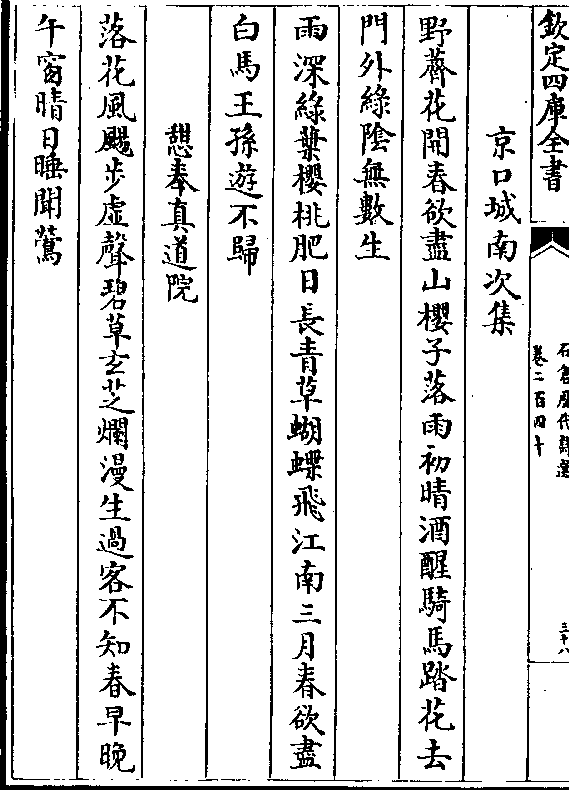 欽定四庫全書
石倉歷代詩選
卷二百四十
三十八
京口城南次集
野薺花開春欲盡山櫻子落雨初晴酒醒騎馬踏花去
門外綠陰無數生
雨深綠葉櫻桃肥日長青草蝴蝶飛江南三月春欲盡
白馬王孫遊不歸
憇奉真道院
落花風颺步虛聲碧草玄芝爛漫生過客不知春早晚
午窗晴日睡聞鶯